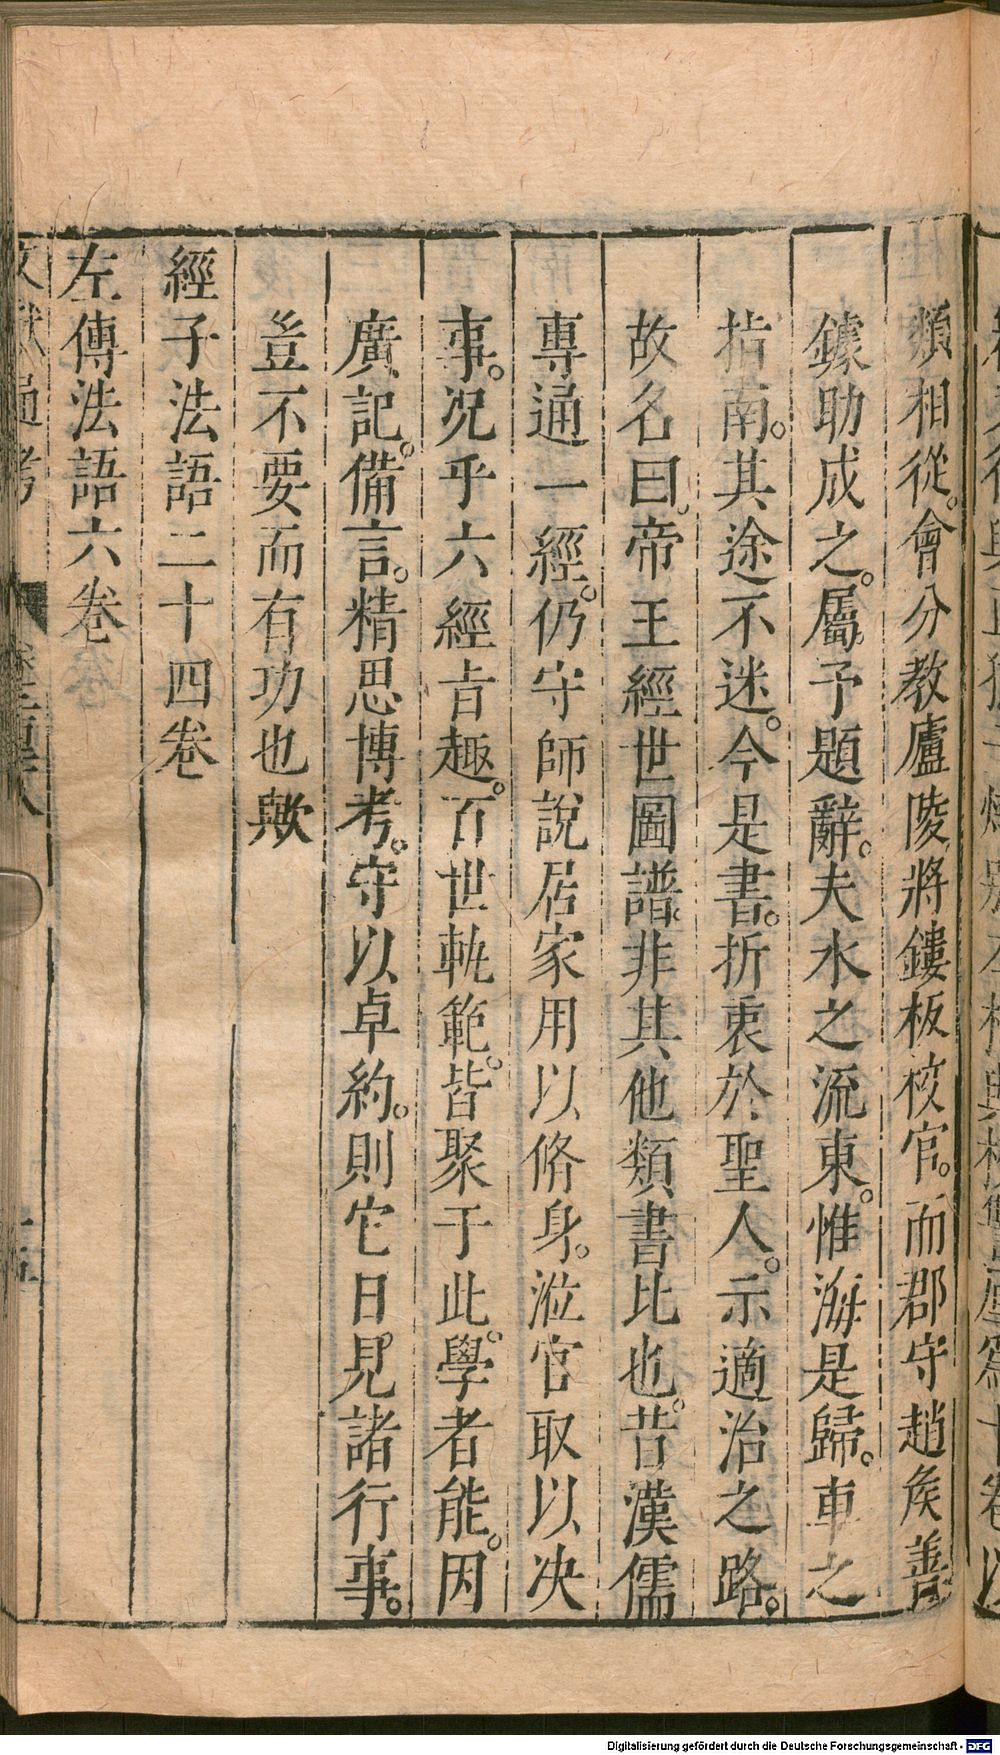 類相從。會分教廬陵將鏤板校官。而郡守趙矦善
鐻助成之。屬予題辭。夫水之流東。惟海是歸。車之
指南。其途不迷。今是書。折衷於聖人。示適治之路。
故名曰。帝王經世圖譜。非其他類書比也。昔漢儒
專通一經。仍守師說居家用以脩身。涖官取以决
事。况乎六經㫖趣。百世軌範。皆聚于此。學者能。因
廣記。備言。精思博考。守以卓約。則它日見諸行事。
豈不要而有功也歟
經子法語二十四卷
左傳法語六卷
文獻通考
Digitalisierung gefördert durch die Deutsche Forschungsgemeinschaft - DFG